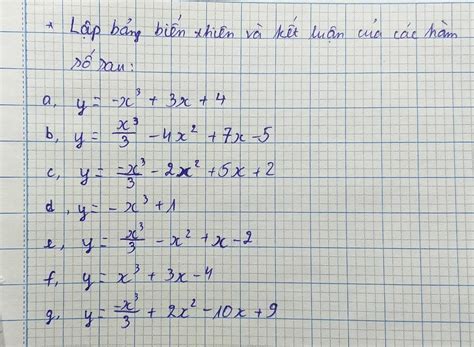 * Lập bảng biến thiên và kết luận của các hàm
số sau:
a, y = -x³ + 3x + 4
b, y = x³/3 - 4x² + 7x - 5
c, y = -x³/3 - 2x² + 5x + 2
d, y = - x³ + 1
e, y = x³/3 - x² + x - 2
f, y = x³ + 3x - 4
g, y = -x³/3 + 2x² - 10x + 9